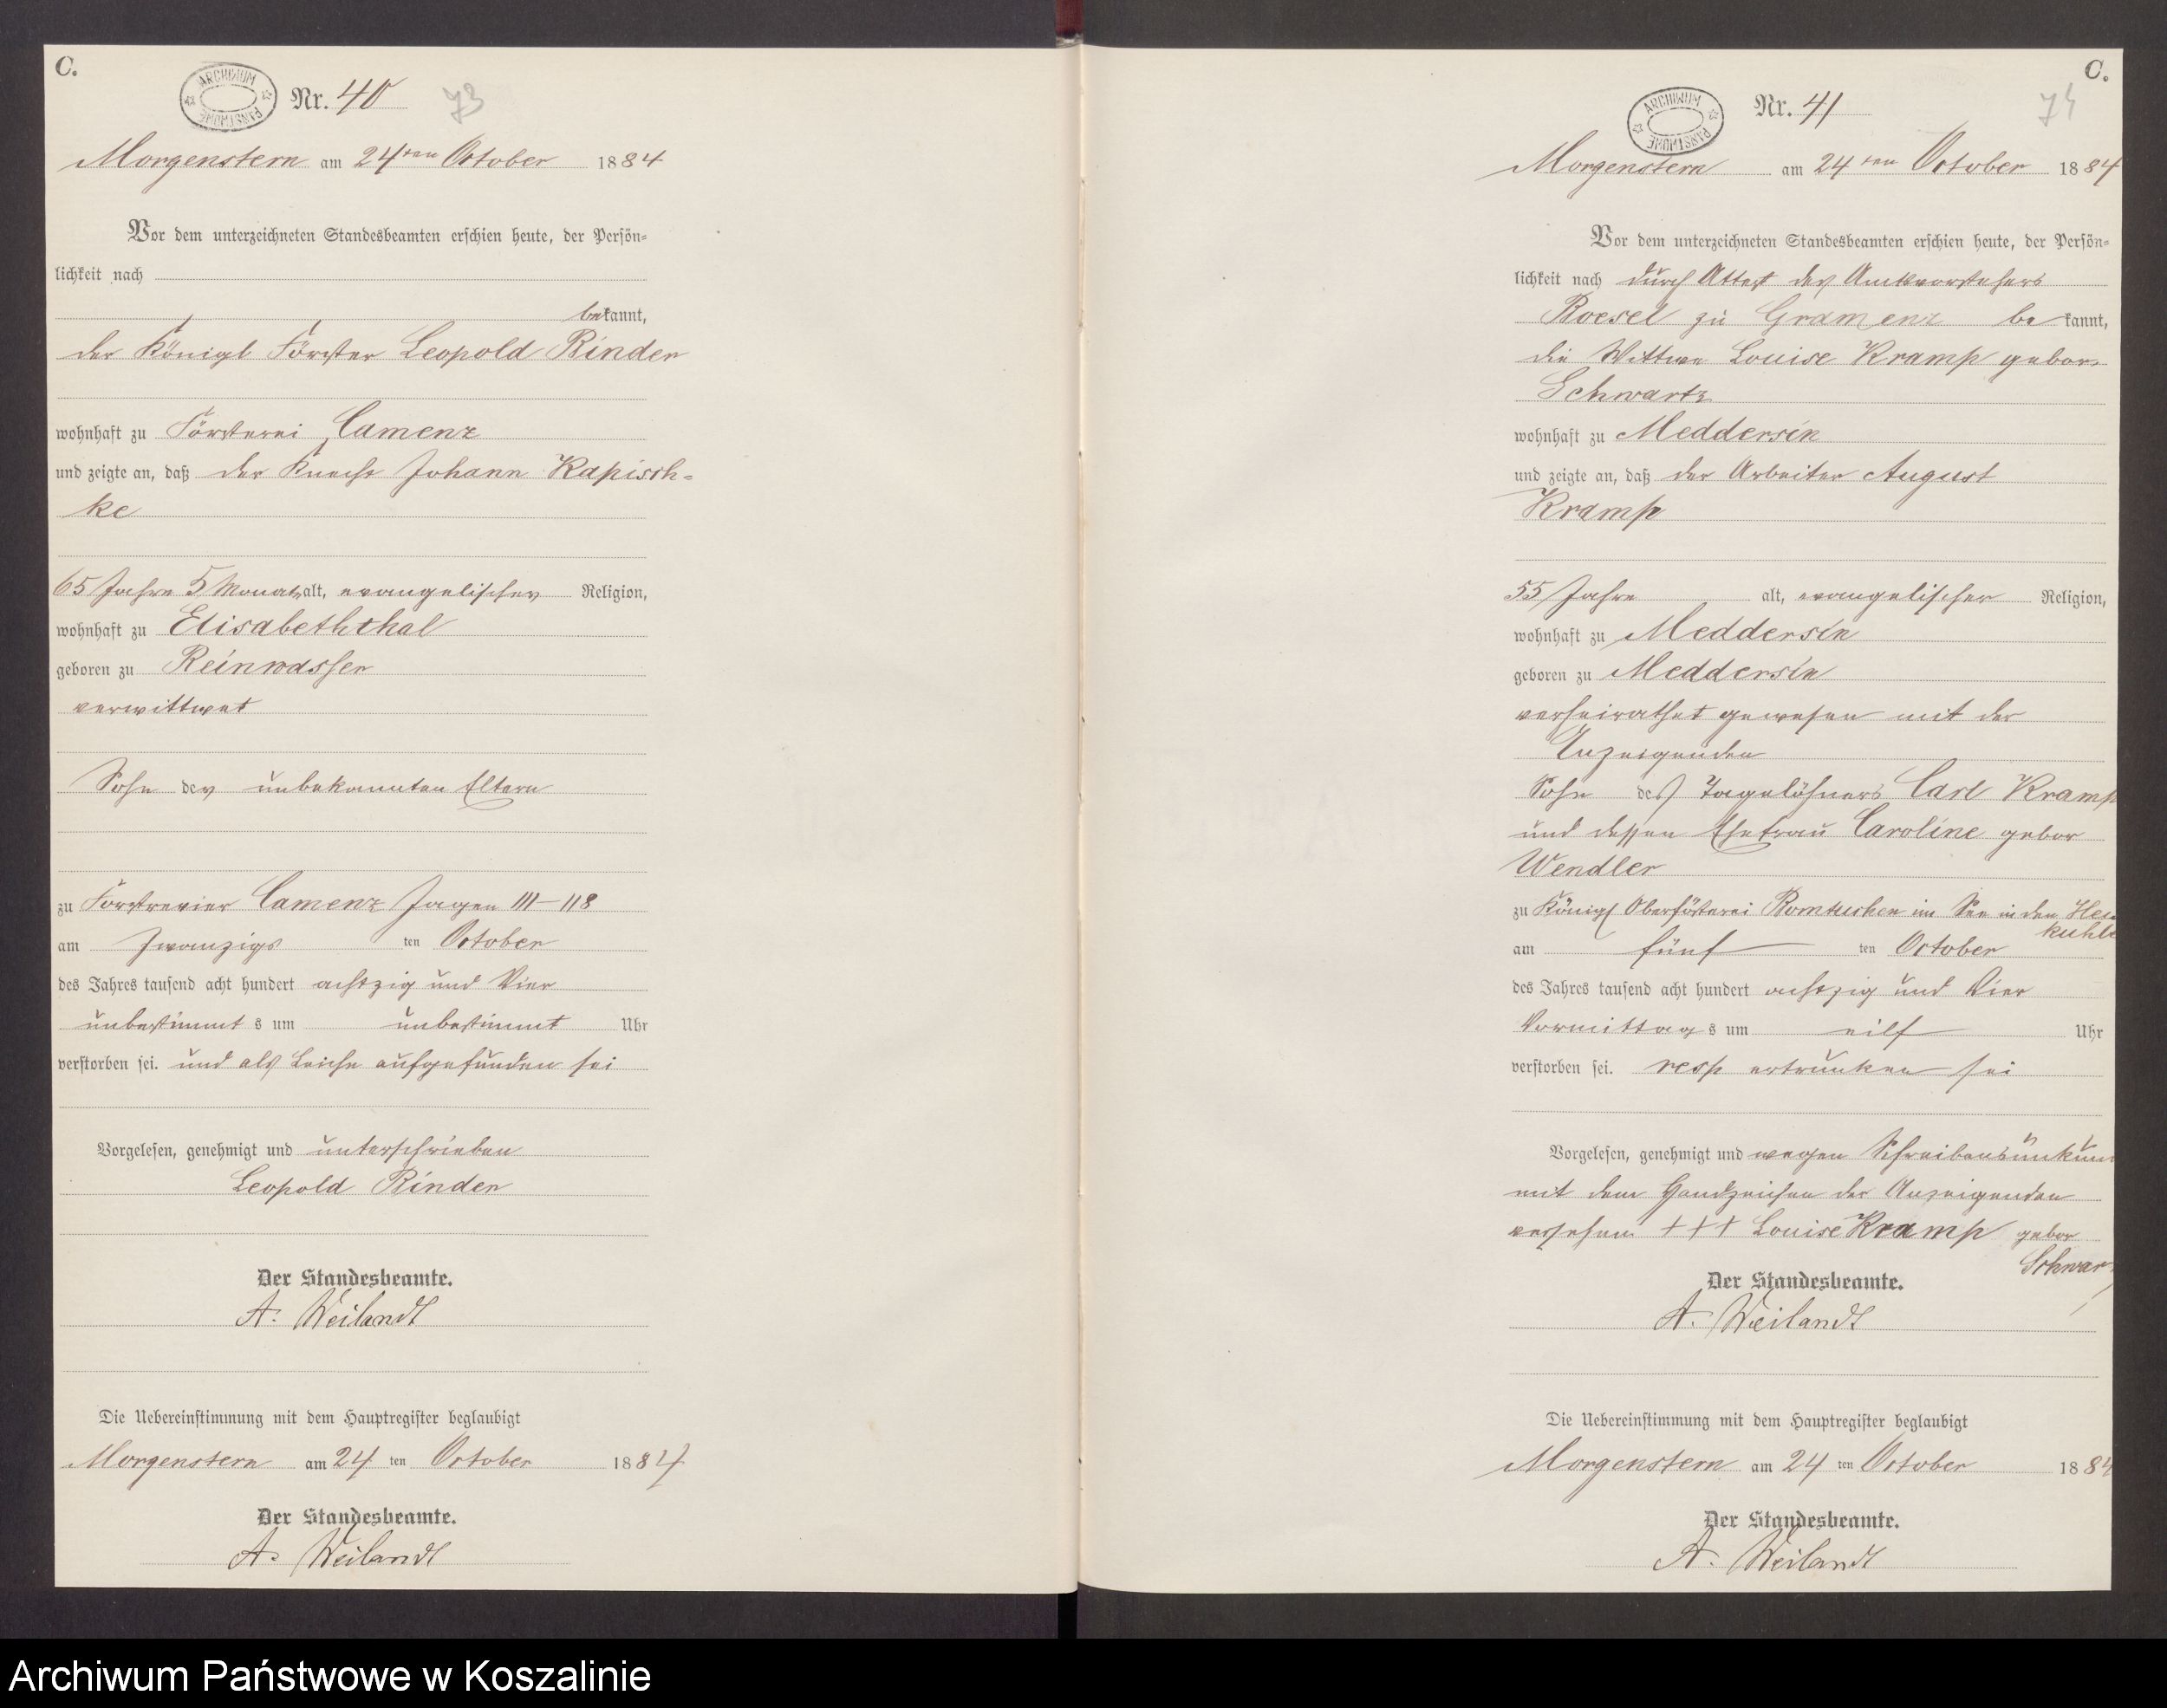 C.
ARCHIWUM PAŃSTWOWE
Nr. 40
73
Morgenstern am 24ten October 1884
Vor dem unterzeichneten Standesbeamten erschien heute, der Persön-
lichkeit nach
bekannt,
der Königl Förster Leopold Binder
wohnhaft zu Försterei Camenz
und zeigte an, daß der Knecht Johann Kapisch-
ke
65 Jahre 5 Monat alt, evangelischer Religion,
wohnhaft zu Elisabeththal
geboren zu Reinwasser
verwittwet
Sohn der unbekannten Eltern
zu Forstrevier Camenz Jagen 111–118
am Zwanzigs ten October
des Jahres tausend acht hundert achtzig und Vier
unbestimmt s um unbestimmt Uhr
verstorben sei. und als Leiche aufgefunden sei
Vorgelesen, genehmigt und unterschrieben
Leopold Binder
Der Standesbeamte.
A. Weilandt
Die Uebereinstimmung mit dem Hauptregister beglaubigt
Morgenstern am 24 ten October 1884
Der Standesbeamte.
A. Weilandt
C.
ARCHIWUM PAŃSTWOWE
Nr. 41
74
Morgenstern am 24ten October 1884
Vor dem unterzeichneten Standesbeamten erschien heute, der Persön-
lichkeit nach durch Attest des Amtsvorstehers
Roesel zu Gramenz be kannt,
die Wittwe Louise Kramp gebor.
Schwartz
wohnhaft zu Meddersin
und zeigte an, daß der Arbeiter August
Kramp
55 Jahre alt, evangelischer Religion,
wohnhaft zu Meddersin
geboren zu Meddersin
verheirathet gewesen mit der
Anzeigenden
Sohn des Tagelöhners Carl Kramp
und dessen Ehefrau Caroline gebor
Wendler
zu Königl Oberförsterei im See in den
kuhle
am fünf ten October
des Jahres tausend acht hundert achtzig und Vier
Vormittag s um eilf Uhr
verstorben sei. resp ertrunken sei
Vorgelesen, genehmigt und wegen Schreibensunkun
mit dem Handzeichen der Anzeigenden
versehen +++ Louise Kramp gebor
Schwar
Der Standesbeamte.
A. Weilandt
Die Uebereinstimmung mit dem Hauptregister beglaubigt
Morgenstern am 24 ten October 1884
Der Standesbeamte.
A. Weilandt
Archiwum Państwowe w Koszalinie